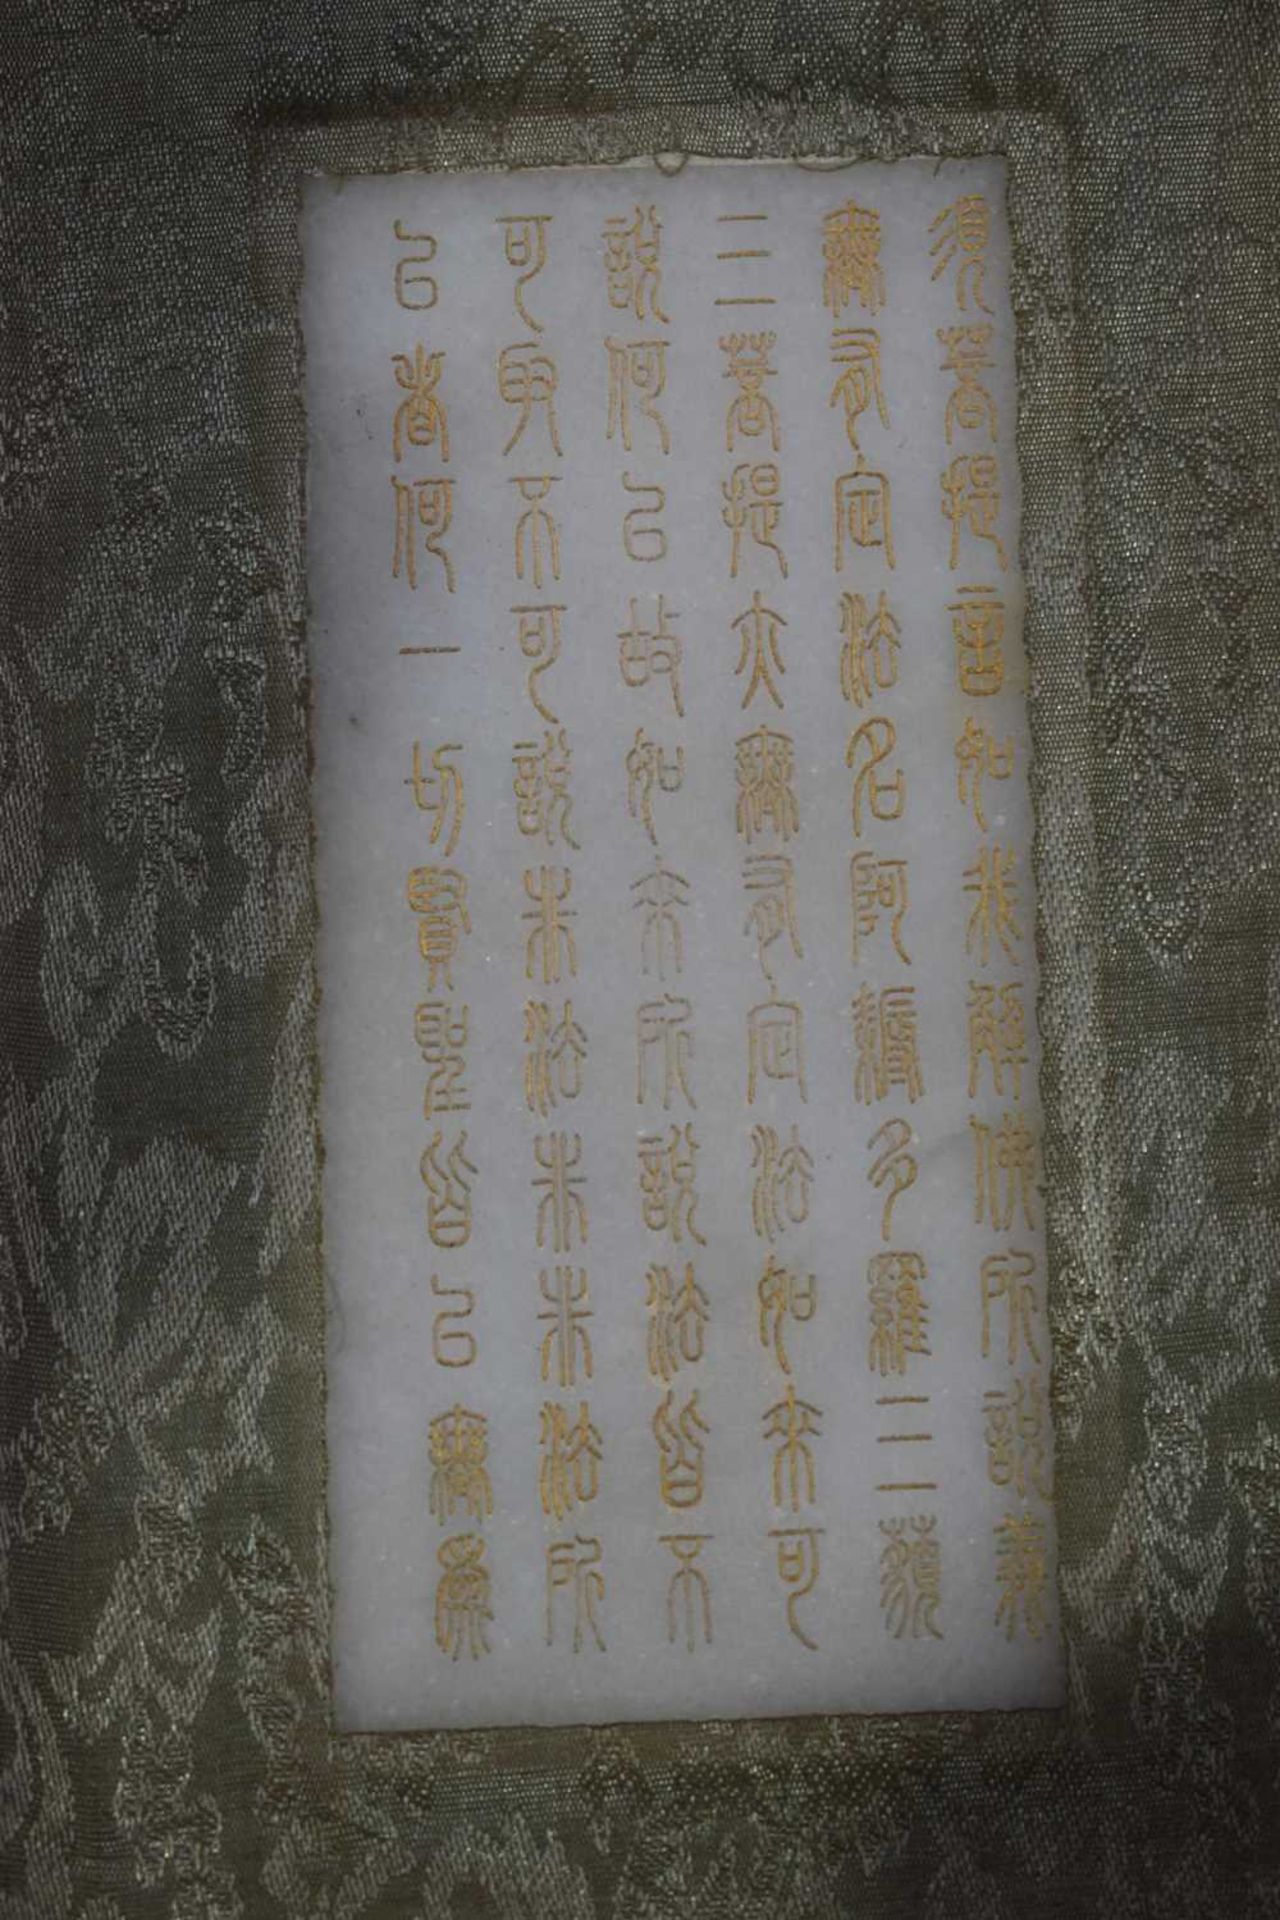 須菩提言如我解佛所說義
無有定法名阿耨多羅三藐
三菩提亦無有定法如來可
說何以故如來所說法皆不
可取不可說非法非非法所
以者何一切賢聖皆以無為